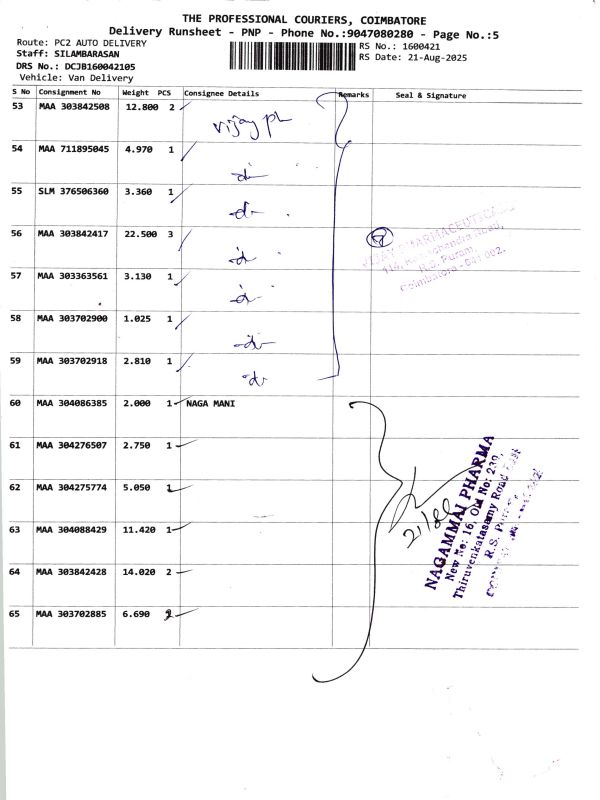 THE PROFESSIONAL COURIERS, COIMBATORE
Delivery Runsheet - PNP - Phone No.:9047080280 - Page No.:5
Route: PC2 AUTO DELIVERY
Staff: SILAMBARASAN
DRS No.: DCJB160042105
Vehicle: Van Delivery
RS No.: 1600421
RS Date: 21-Aug-2025
S No Consignment No Weight PCS Consignee Details Remarks Seal & Signature
53 MAA 303842508 12.800 2 vijay ph
54 MAA 711895045 4.970 1
55 SLM 376506360 3.360 1
56 MAA 303842417 22.500 3
57 MAA 303363561 3.130 1
58 MAA 303702900 1.025 1
59 MAA 303702918 2.810 1
60 MAA 304086385 2.000 1 NAGA MANI
61 MAA 304276507 2.750 1
62 MAA 304275774 5.050 1
63 MAA 304088429 11.420 1
64 MAA 303842428 14.020 2
65 MAA 303702885 6.690
VIJAY PHARMACEUTICALS
R.S. Puram,
Coimbatore - 641 002.
21/8
NAGAMMAI PHARMA
New No: 16, Old No: 239,
Thiruvenkatasamy Road East
R.S. Puram